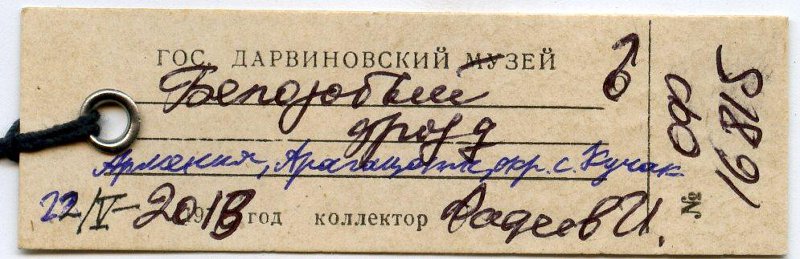 ГОС. ДАРВИНОВСКИЙ МУЗЕЙ
Белозобый ♂
дрозд
Армения, Арагацотн, окр. с. Кучак
22/IV-2013 год коллектор Фадеев И.
№ 16815